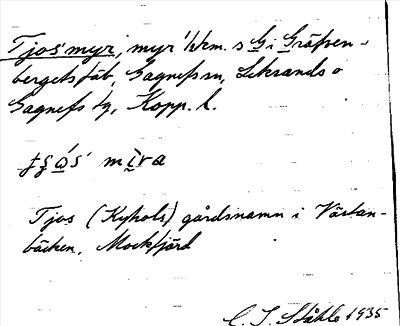 Tjos'myr, myr 1 km. s G i Gräfven-
bergets fäb, Gagnefs sn, Leksands o
Gagnefs tg, Kopp. l.
mìra
Tjos (Kyhols) gårdsnamn i Västan-
bäcken, Mockfjärd
C. I. Ståhle 1935